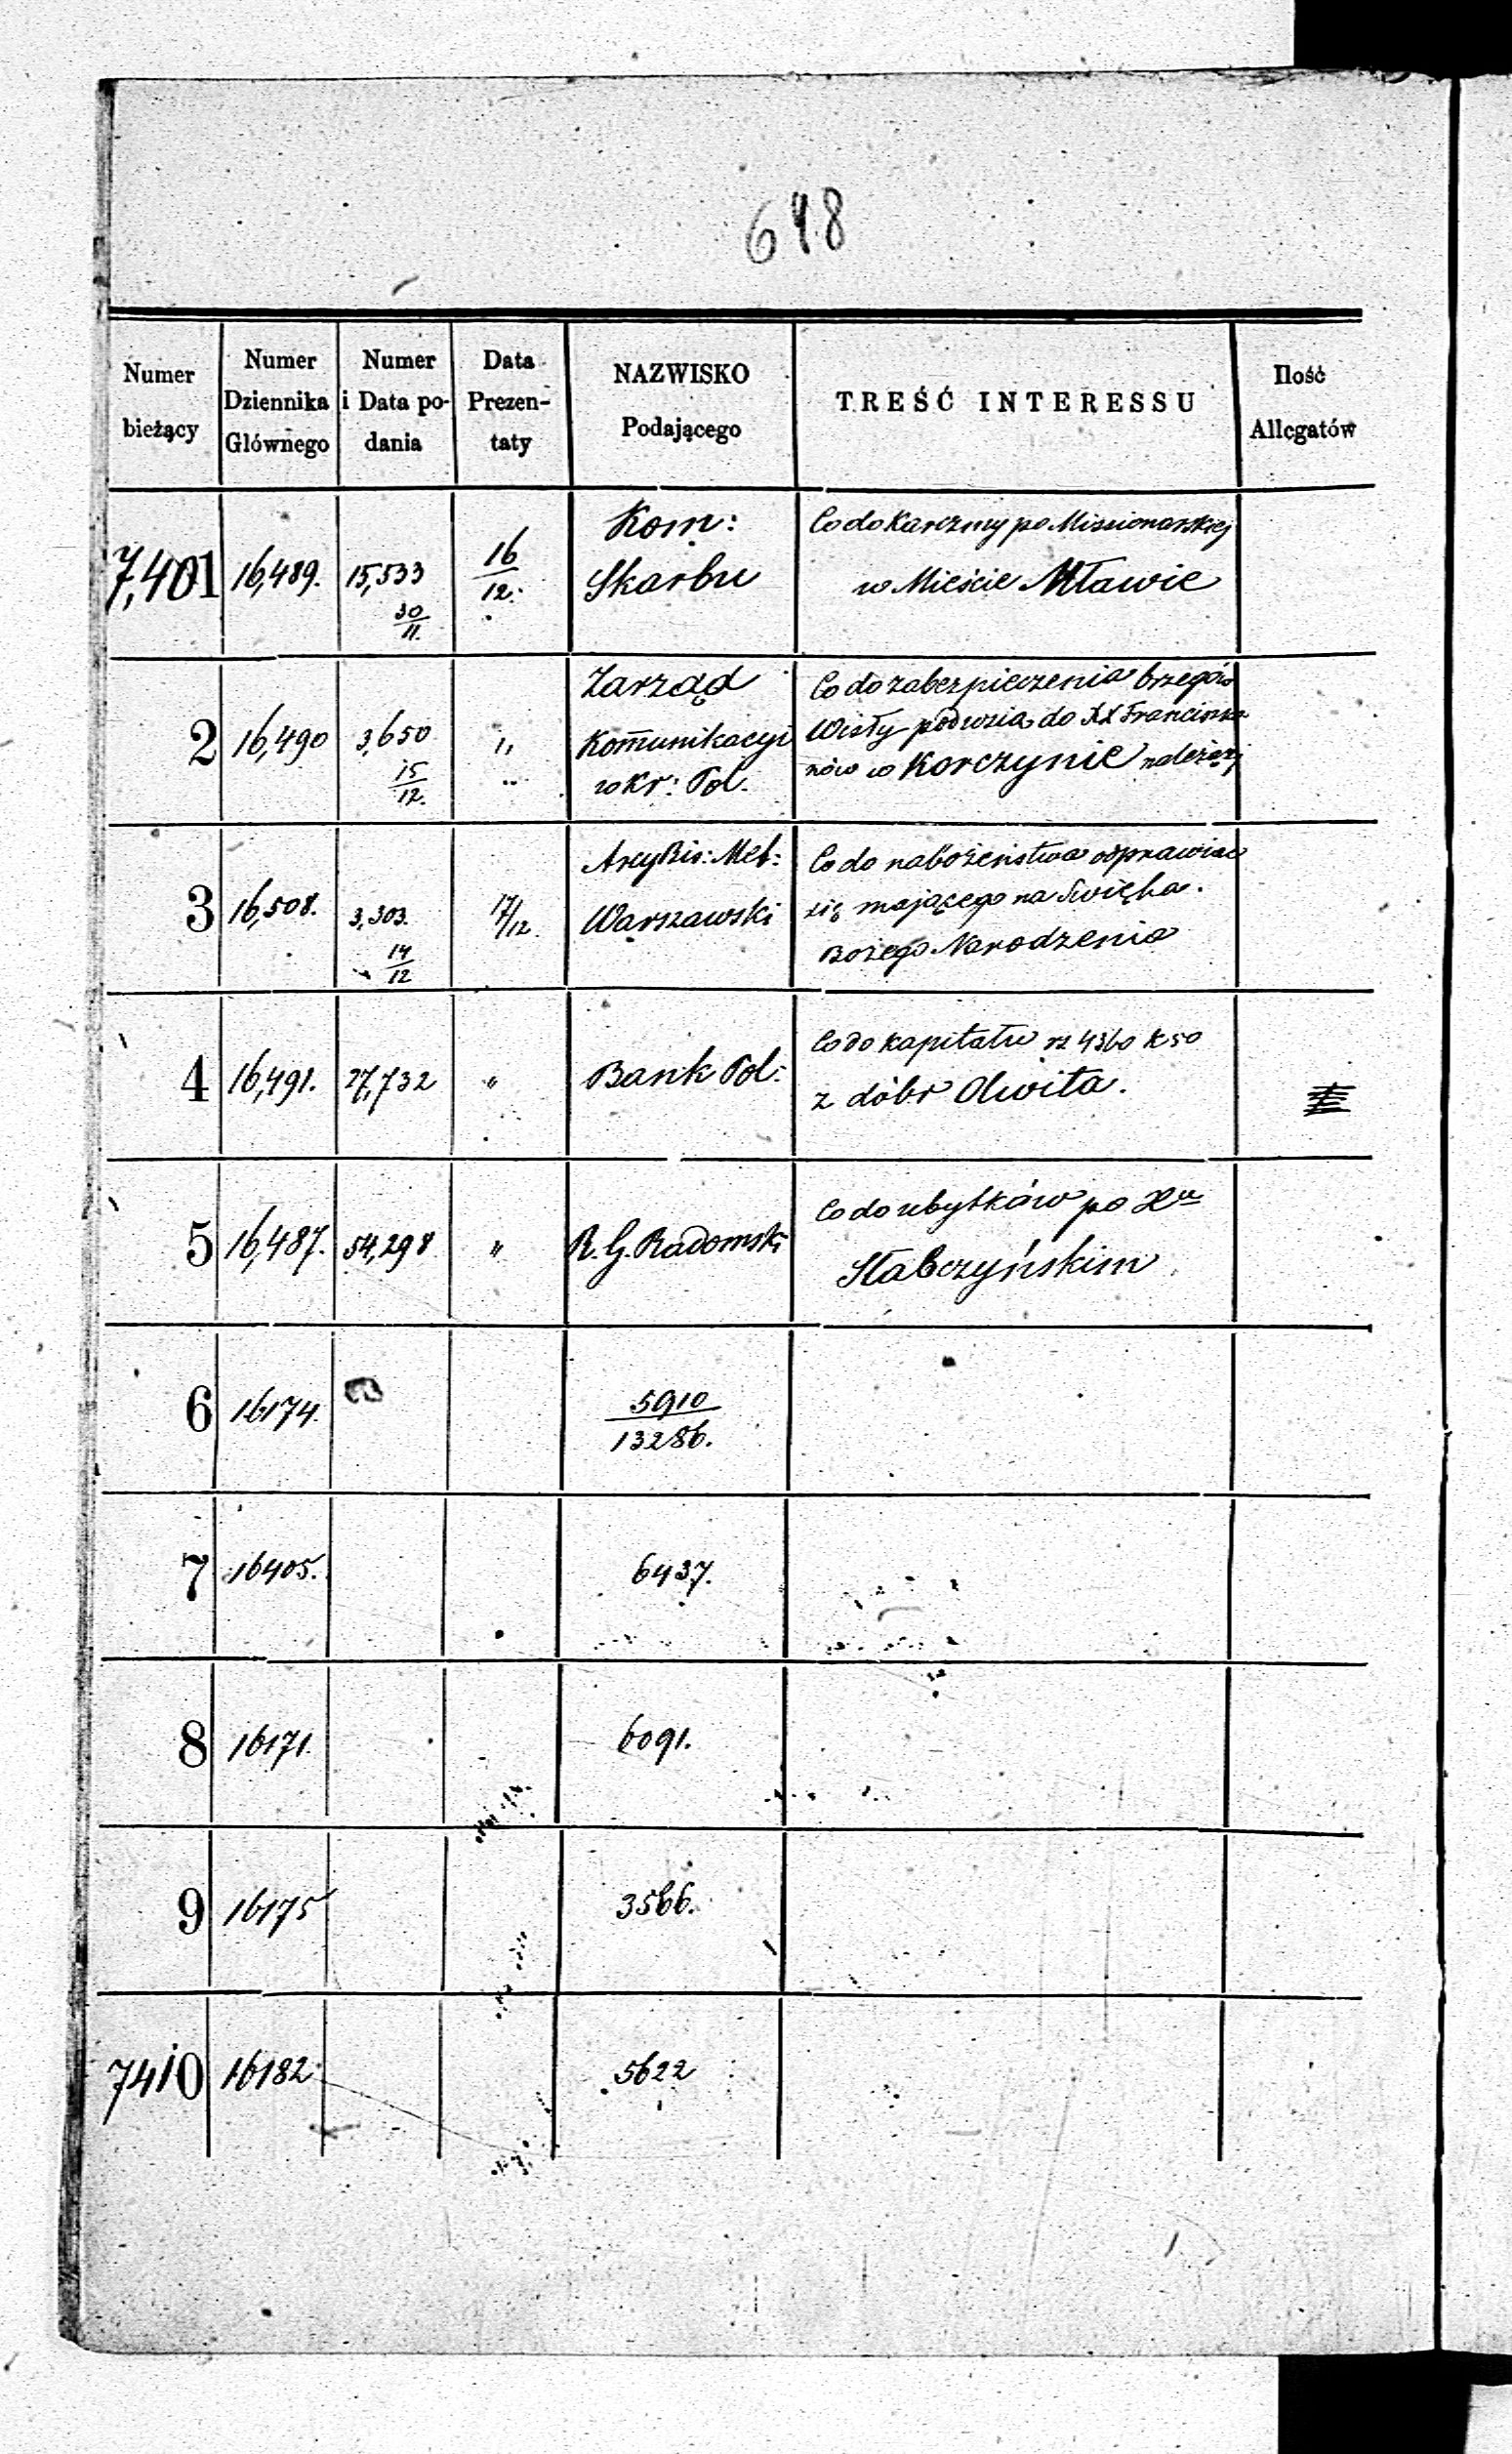 648
Numer bieżący
Numer Dziennika Głównego
Numer i Data podania
Data Prezentaty
NAZWISKO Podającego
TREŚĆ INTERESSU
Ilość Allegatów
7,401 16,489. 15,533 30/11. 16/12. Kom: Skarbu
Co do Karczmy po Missionarskiej
w Mieście Mławie
2 16,490 3,650 15/12. " " Zarząd Kommunikacyi w Kr: Pol.
Co do zabezpieczenia brzegów
Wisły podwzia do XX Franciszka
nów w Korczynie należący
3 16,508. 3,303. 14/12 17/12. ArcyBis: Met: Warszawski
Co do nabożeństwa odprawiać
się mającego na Święta
Bożego Narodzenia
4 16,491. 27,732 " Bank Pol:
Co do kapitału rs 4360 k 50
z dóbr Olwita.
5 16,487. 54,298 " R. G. Radomski
Co do ubytków po Xu
Stabczyńskim
6 16174. 5910/13286.
7 16405. 6437.
8 16171. 6091.
9 16175 3566.
7410 16182 5622